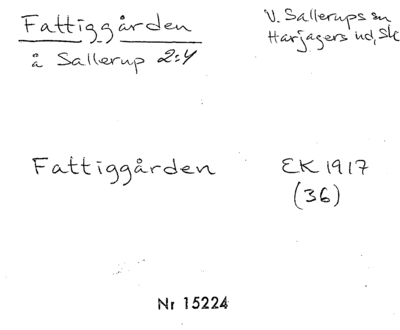 Fattiggården
å Sallerup 2:4
V. Sallerups sn
Harjagers hd, Sk
Fattiggården
EK 1917
(36)
Nr 15224